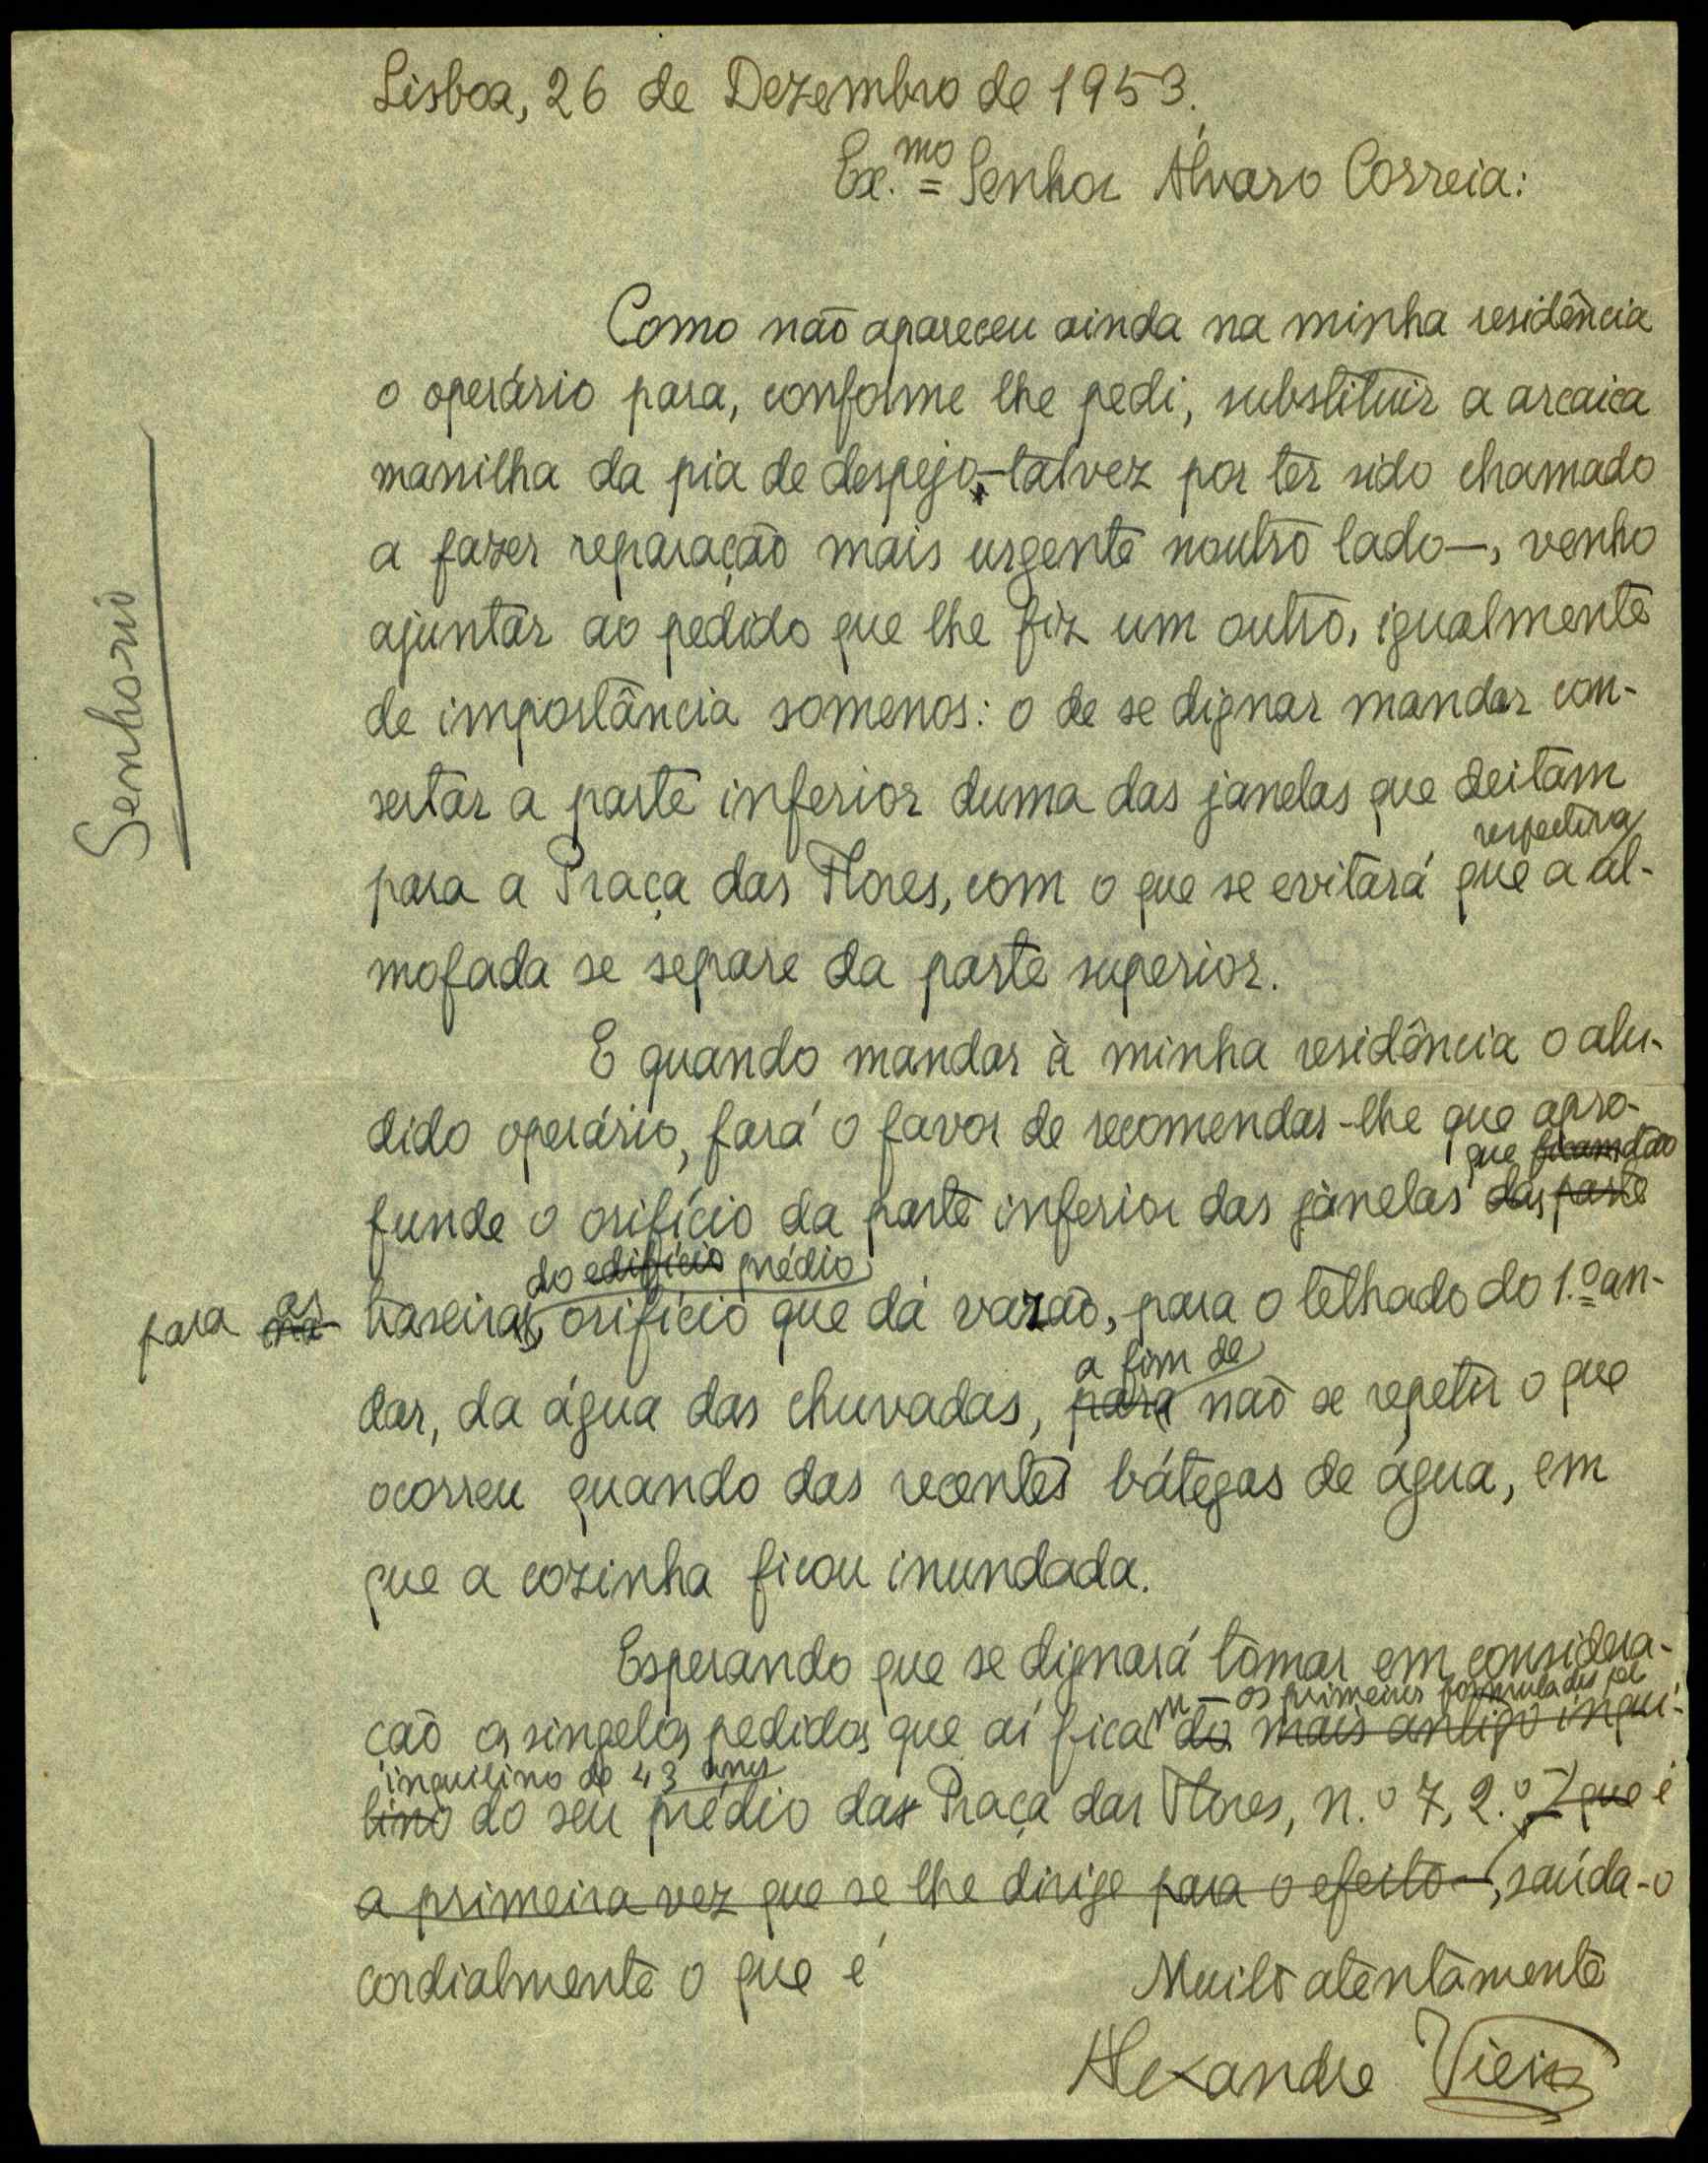 Lisboa, 26 de Dezembro de 1953.
Ex.mo Senhor Álvaro Correia:
Senhorio
Como não apareceu ainda na minha residência
o operário para, conforme lhe pedi, substituir a arcaica
manilha da pia de despejo,—talvez por ter sido chamado
a fazer reparação mais urgente noutro lado—, venho
ajuntar ao pedido que lhe fiz um outro, igualmente
de importância somenos: o de se dignar mandar con-
sertar a parte inferior duma das janelas que deitam
respectiva
para a Praça das Flores, com o que se evitará que a al-
mofada se separe da parte superior.
E quando mandar à minha residência o alu-
dido operário, fará o favor de recomendar-lhe que apro-
que ficam dão
funde o orifício da parte inferior das janelas das parte
do edifício prédio
para as traseiras, orifício que dá vazão, para o telhado do 1.º an-
a fim de
dar, da água das chuvadas, para não se repetir o que
ocorreu quando das recentes bátegas de água, em
que a cozinha ficou inundada.
Esperando que se dignará tomar em considera-
m — os primeiros formulados pelo
ção os singelos pedidos que aí fica do mais antigo inqui-
inquilino de 43 anos
lino do seu prédio da Praça das Flores, n.º 7, 2.º — que é
a primeira vez que se lhe dirige para o efeito—, saúda-o
cordialmente o que é
Muito atentamente
Alexandre Vieira